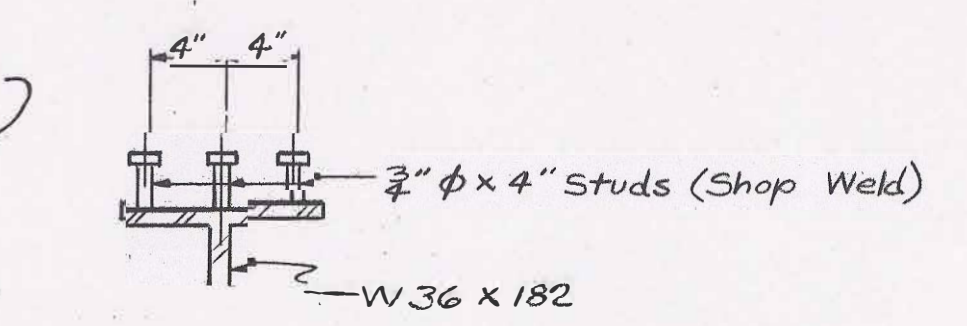 4" 4"
3/4" φ x 4" Studs (Shop Weld)
W 36 x 182